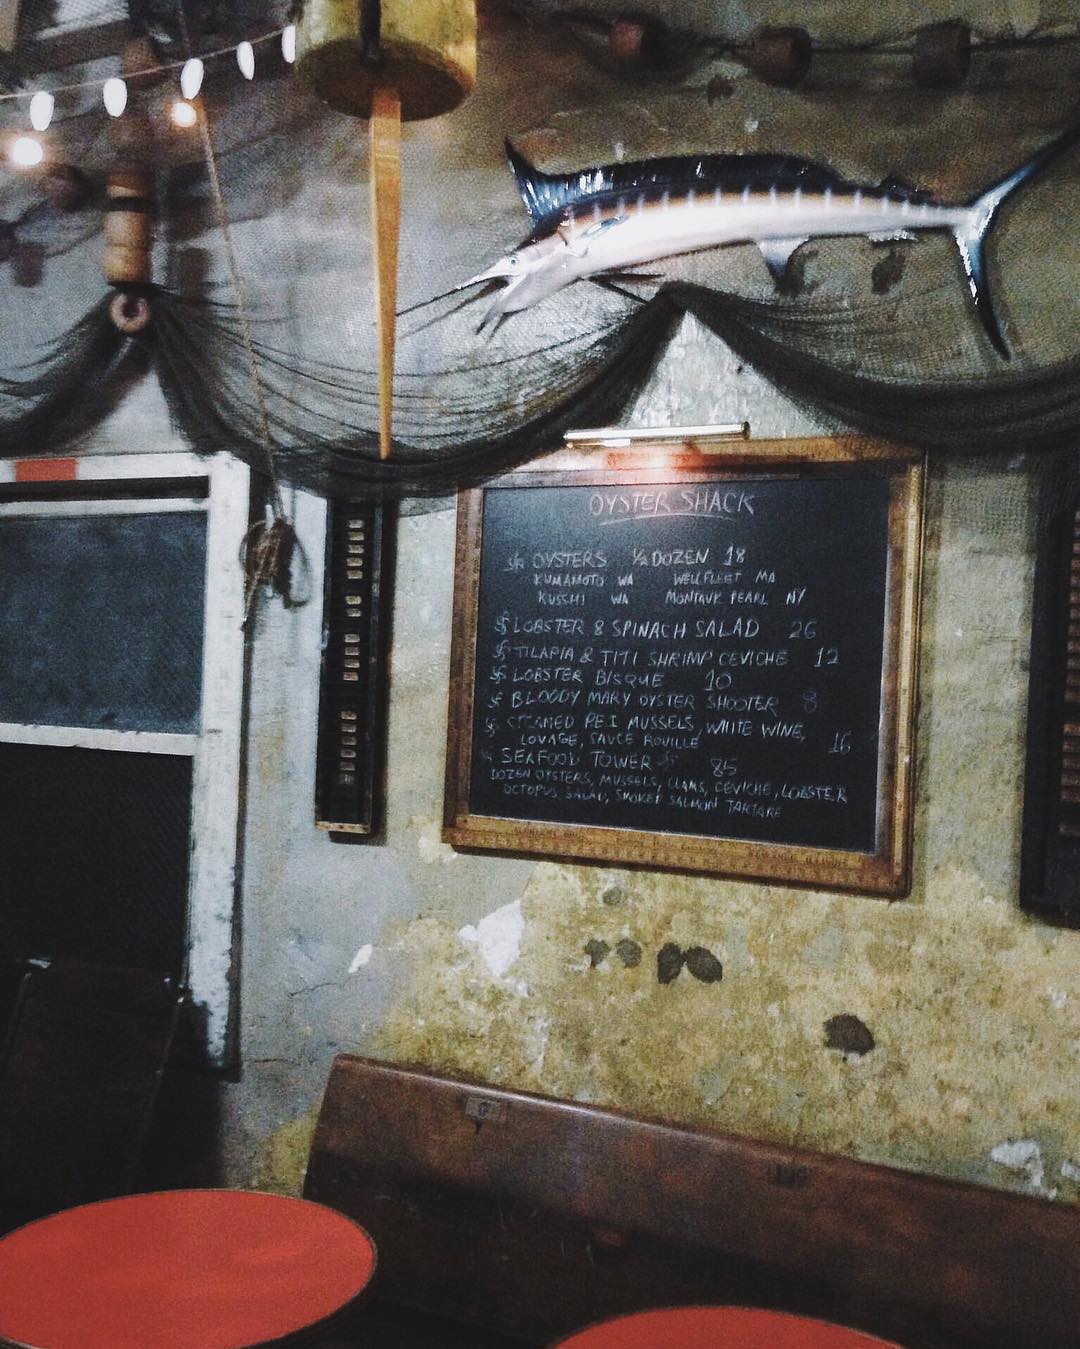 OYSTER SHACK
OYSTERS ½ DOZEN 18
KUMAMOTO WA WELLFLEET MA
KUSSHI WA MONTAUK PEARL NY
LOBSTER & SPINACH SALAD 26
TILAPIA & TITI SHRIMP CEVICHE 12
LOBSTER BISQUE 10
BLOODY MARY OYSTER SHOOTER 8
STEAMED P.E.I MUSSELS, WHITE WINE,
LOVAGE, SAUCE ROUILLE 16
SEAFOOD TOWER 85
DOZEN OYSTERS, MUSSELS, CLAMS, CEVICHE, LOBSTER
OCTOPUS SALAD, SMOKED SALMON TARTARE